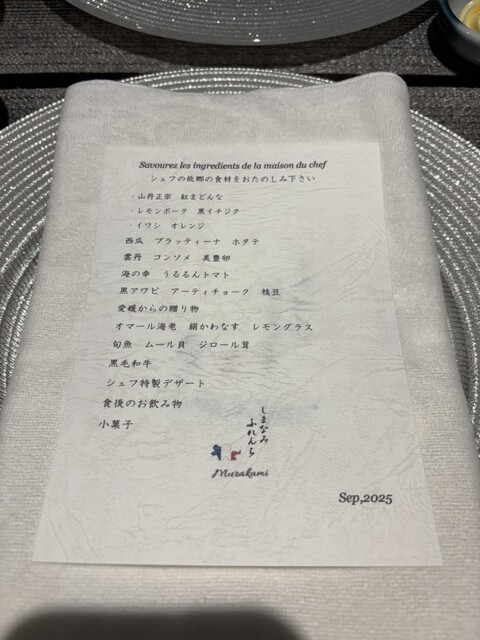 Savourez les ingredients de la maison du chef
シェフの故郷の食材をおたのしみ下さい
・山丹正宗 紅まどんな
・レモンポーク 黒イチジク
・イワシ オレンジ
西瓜 ブラッティーナ ホタテ
雲丹 コンソメ 美豊卵
海の幸 うるるんトマト
黒アワビ アーティチョーク 枝豆
愛媛からの贈り物
オマール海老 絹かわなす レモングラス
旬魚 ムール貝 ジロール茸
黒毛和牛
シェフ特製デザート
食後のお飲み物
小菓子
しまなみ
ふれんち
Murakami
Sep,2025